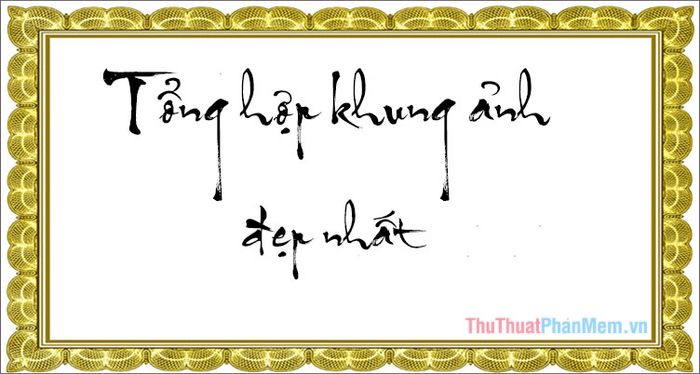 Tổng hợp khung ảnh
đẹp nhất
ThuThuatPhanMem.vn